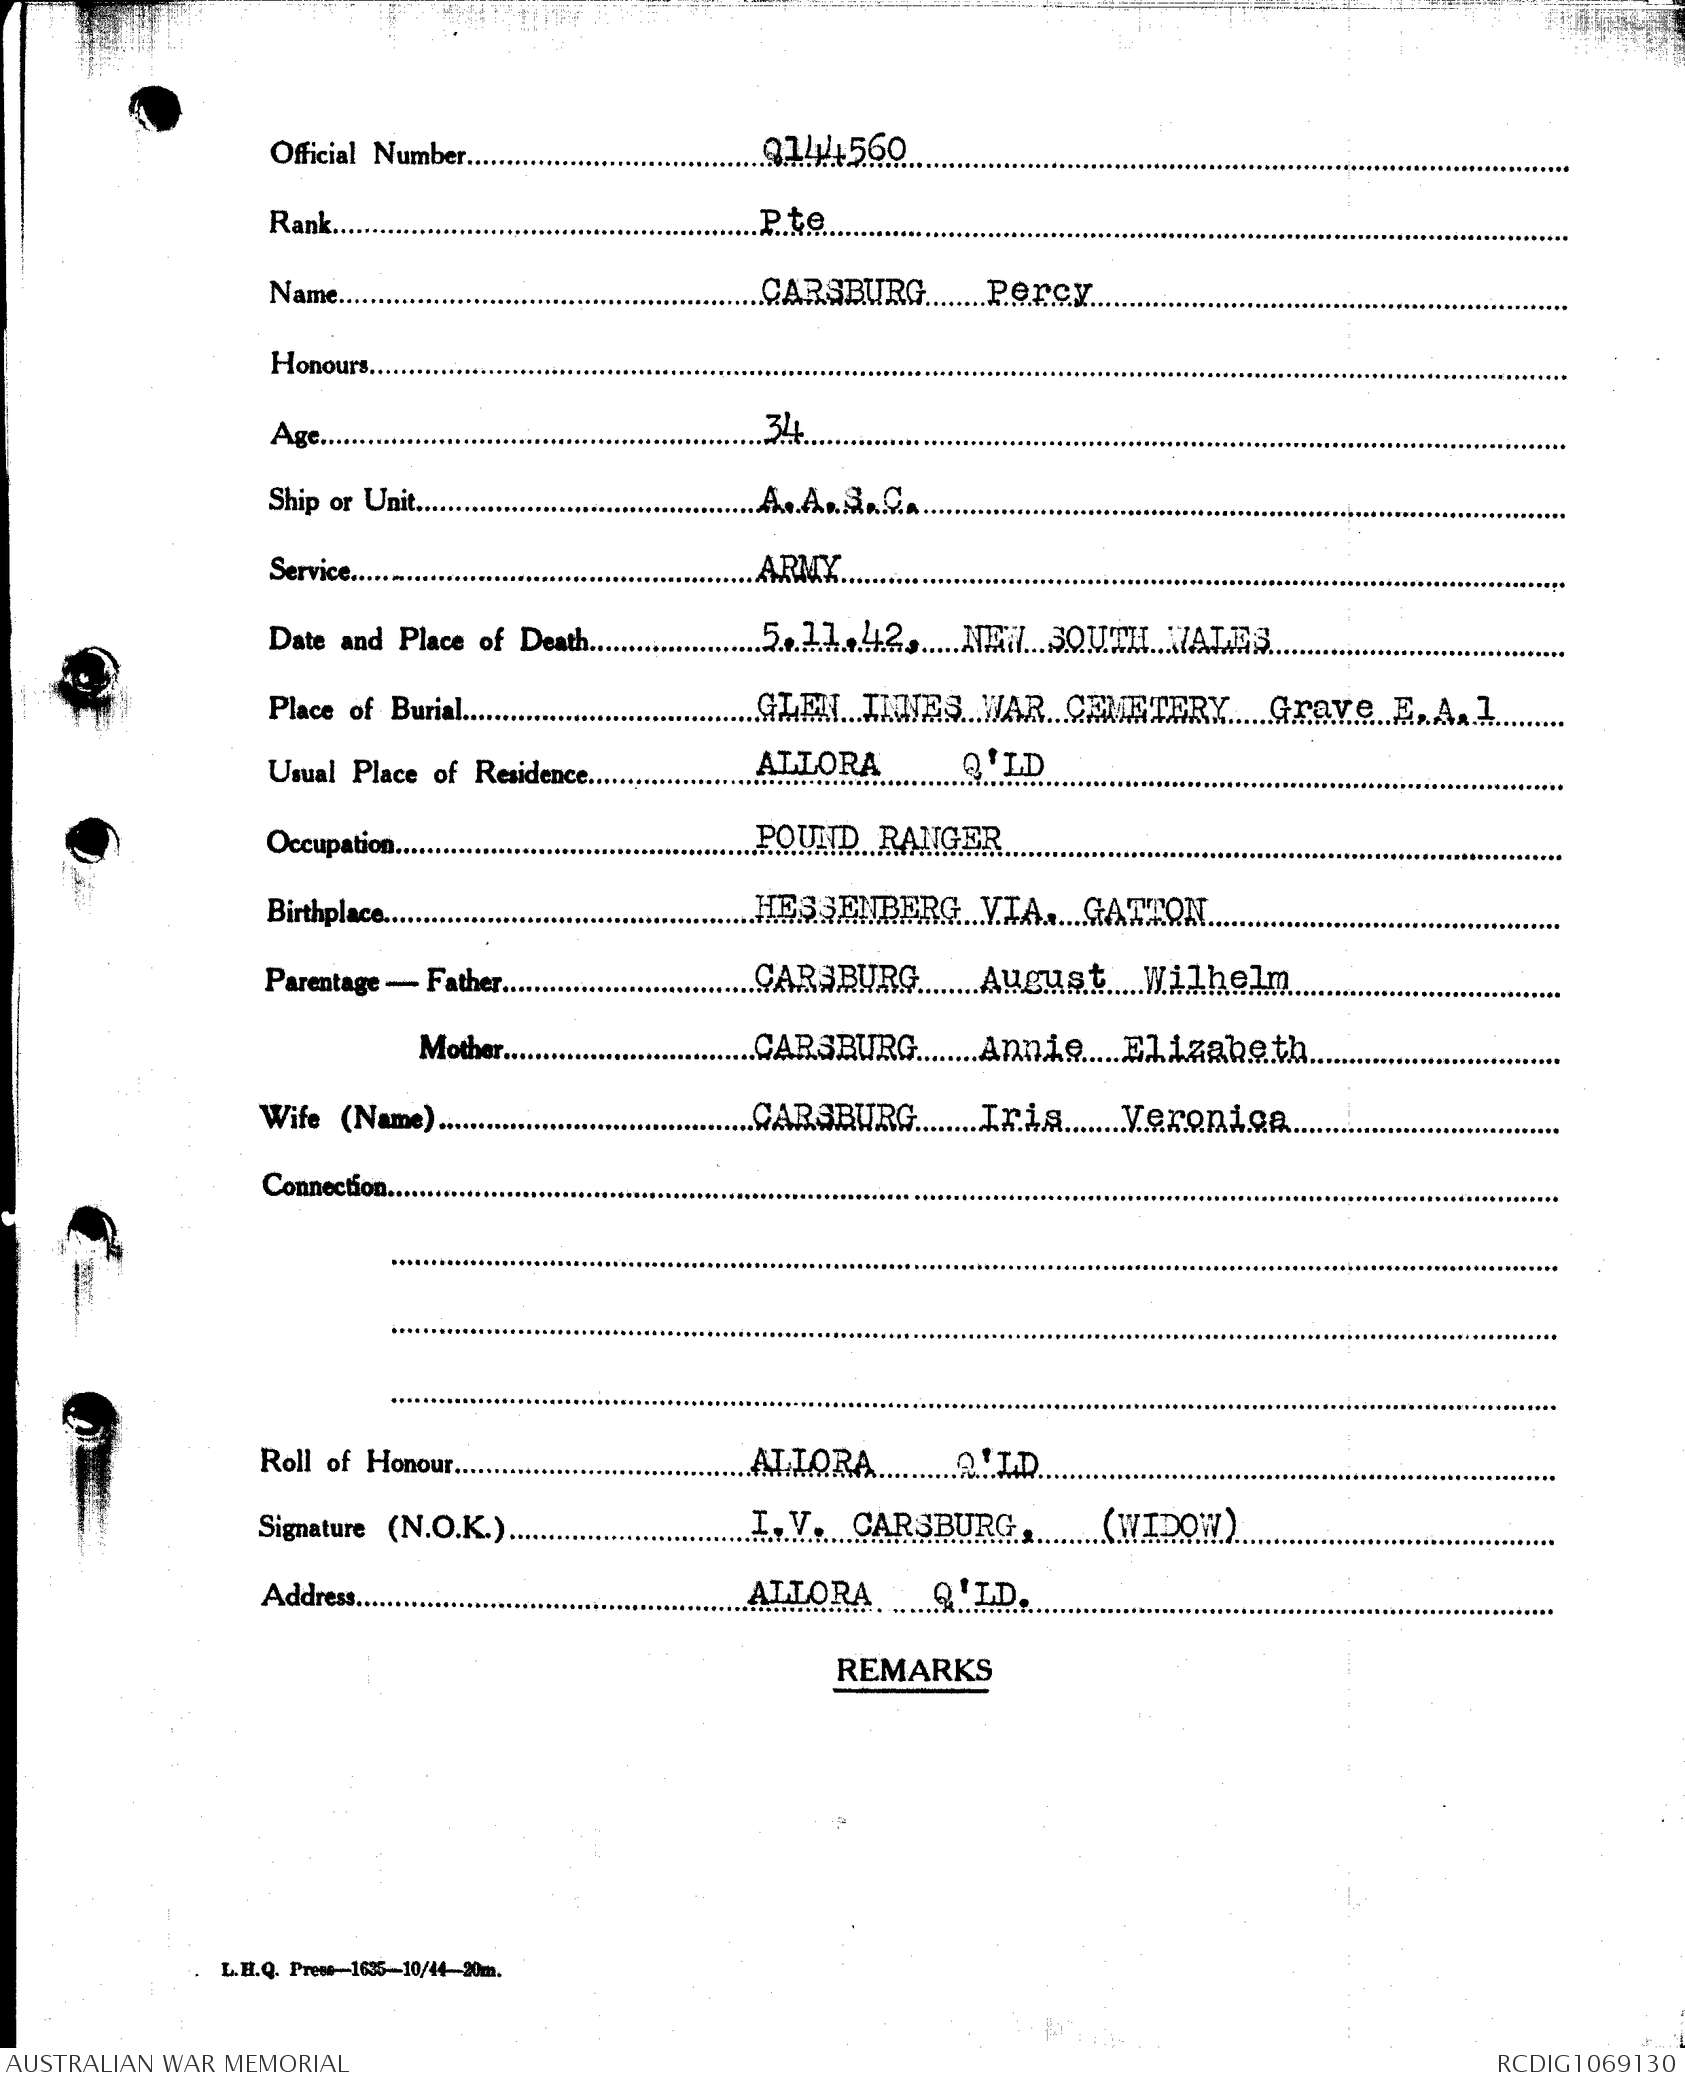 Official Number Q144560
Rank Pte
Name CARSBURG Percy
Honours
Age 34
Ship or Unit A.A.S.C.
Service ARMY
Date and Place of Death 5.11.42. NEW SOUTH WALES
Place of Burial GLEN INNES WAR CEMETERY Grave E.A.1
Usual Place of Residence ALLORA Q'LD
Occupation POUND RANGER
Birthplace HESSENBERG VIA. GATTON
Parentage — Father CARSBURG August Wilhelm
Mother CARSBURG Annie Elizabeth
Wife (Name) CARSBURG Iris Veronica
Connection
Roll of Honour ALLORA Q'LD
Signature (N.O.K.) I.V. CARSBURG. (WIDOW)
Address ALLORA Q'LD.
REMARKS
L.H.Q. Press—1635—10/44—20m.
AUSTRALIAN WAR MEMORIAL RCDIG1069130